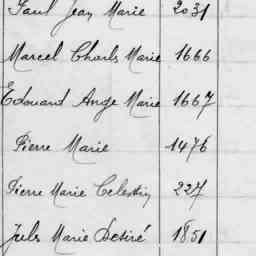 Paul Jean Marie 2031
Marcel Charls Marie 1666
Edouard Ange Marie 1667
Pierre Marie 1476
Pierre Marie Celestin 227
Jules Marie Desiré 1851